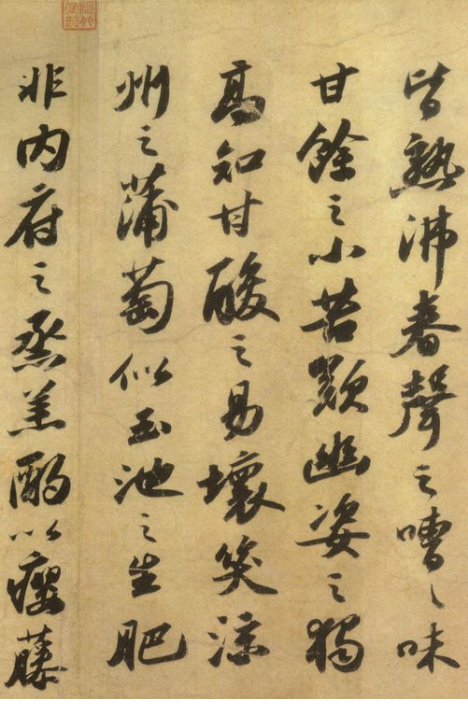 皆熟沸舂聲之嘈々味
甘餘之小苦歎幽姿之獨
高知甘酸之易壞笑涼
州之蒲萄似玉池之生肥
非内府之烝羔酌以癭藤